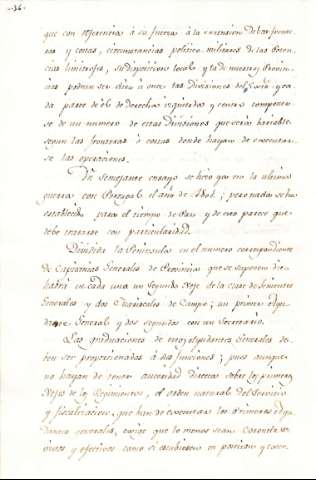 -36-
que con referencias à su fuerza à la extension de las fronte-
ras y costas, circunstancias politico-militares de las Poten-
cias limitrofes, su disposicion local y la de nuestras Provin-
cias podran ser diez ù once las Divisiones del y ca-
da parte de òb de derecha izquierda y centro componer-
se de un numero de estas Divisiones que seria barriable
segun las fronteras ò costas donde hayan de executar-
se las operaciones.
Un semejante ensayo se hizo que en la ultima
guerra con Portugal el año de 1801; pero nada se ha
establecido para el tiempo de Paz y de esto parece que
debe tratarse con particularidad.
Dividida la Peninsula en el numero correspondiente
de Capitanias Generales de Provincias que se suponen
habria en cada una un segundo Xefe de la clase de Tenientes
Generales y dos Mariscales de Campo; un primer Ayu-
dante General y dos segundos con un Secretario.
Las graduaciones de estos Ayudantes Generales de-
ben ser proporcionadas à sus funciones; pues aunque
no hayan de tener autoridad directa sobre los primeros
Xefes de los Regimientos, el orden natural del servicio
y fiscalizacion, que han de executar los primeros Ayu-
dantes Generales, exige que lo menos sean Coroneles
vivos y efectivos como se establecieron en Portugal y